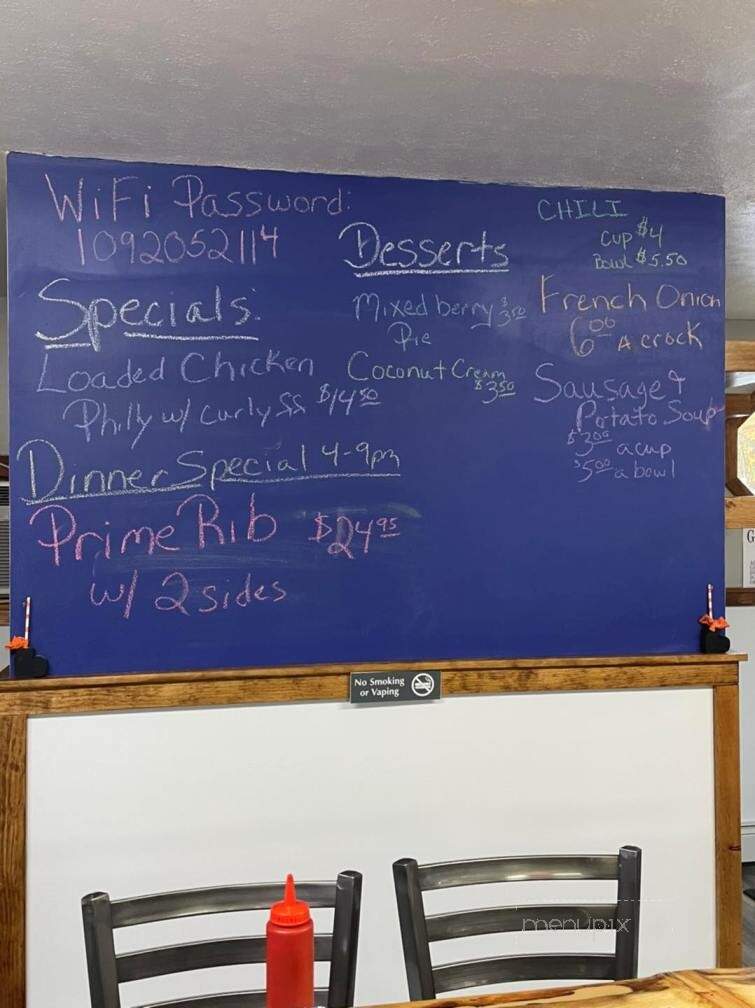 WiFi Password:
1092052114
Specials:
Loaded Chicken
Philly w/ curly $$ $14.50
Dinner Special 4-9pm
Prime Rib $24.95
w/ 2 sides
Desserts
Mixed berry $3.50
Pie
Coconut Cream
$3.50
CHILI
Cup $4
Bowl $5.50
French Onion
6.00 A crock
Sausage &
Potato Soup
$3.00 a cup
$5.00 a bowl
No Smoking
or Vaping
G
menupix